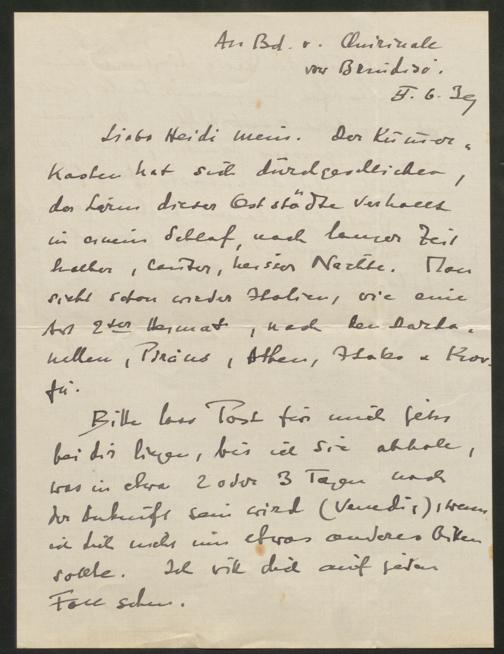 An Bd. v. Quirinale
vor Brindisi.
II. 6. 39
Liebe Heidi mein. Der
kasten hat sich durchgeschlichen,
der Lärm dieser Oststädte verhallt
in einem Schlaf, nach langer Zeit
halber, lauter, heisser Nächte. Man
sieht schon wieder Italien, wie eine
Art 2ter Heimat, nach den Darda-
nellen, Piräus, Athen, Itaka u Kor-
fu.
Bitte lass Post für mich jetzt
bei dir liegen, bis ich sie abhole,
was in etwa 2 oder 3 Tagen nach
der Ankunft sein wird (Venedig), wenn
ich dich nicht um etwas anderes bitten
sollte. Ich will dich auf jeden
Fall sehen.